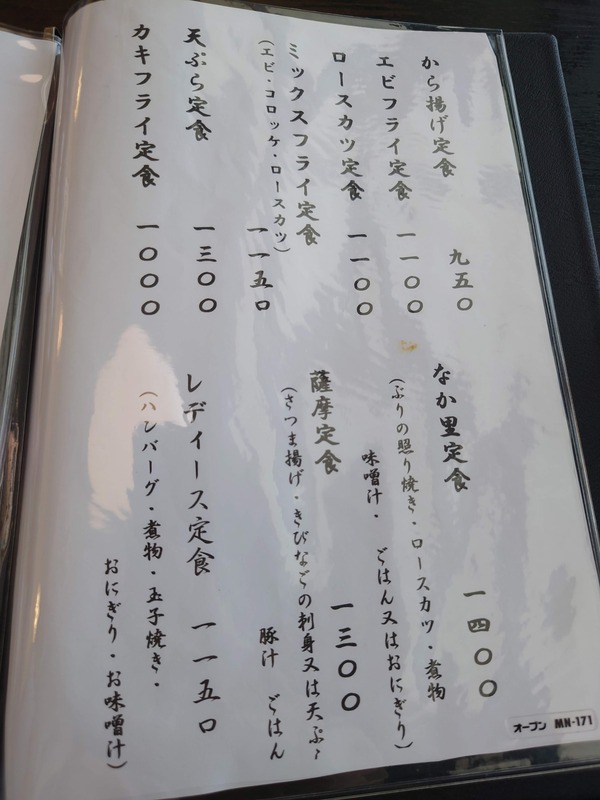 から揚げ定食 九五〇
エビフライ定食 一一〇〇
ロースカツ定食 一一〇〇
ミックスフライ定食
(エビ・コロッケ・ロースカツ) 一一五〇
天ぷら定食 一三〇〇
カキフライ定食 一〇〇〇
なか里定食 一四〇〇
(ぶりの照り焼き・ロースカツ・煮物
味噌汁・ ごはん又はおにぎり)
薩摩定食 一三〇〇
(さつま揚げ・きびなごの刺身又は天ぷら
豚汁 ごはん
レディース定食 一一五〇
(ハンバーグ・煮物・玉子焼き・
おにぎり・お味噌汁)
オープン MN-171